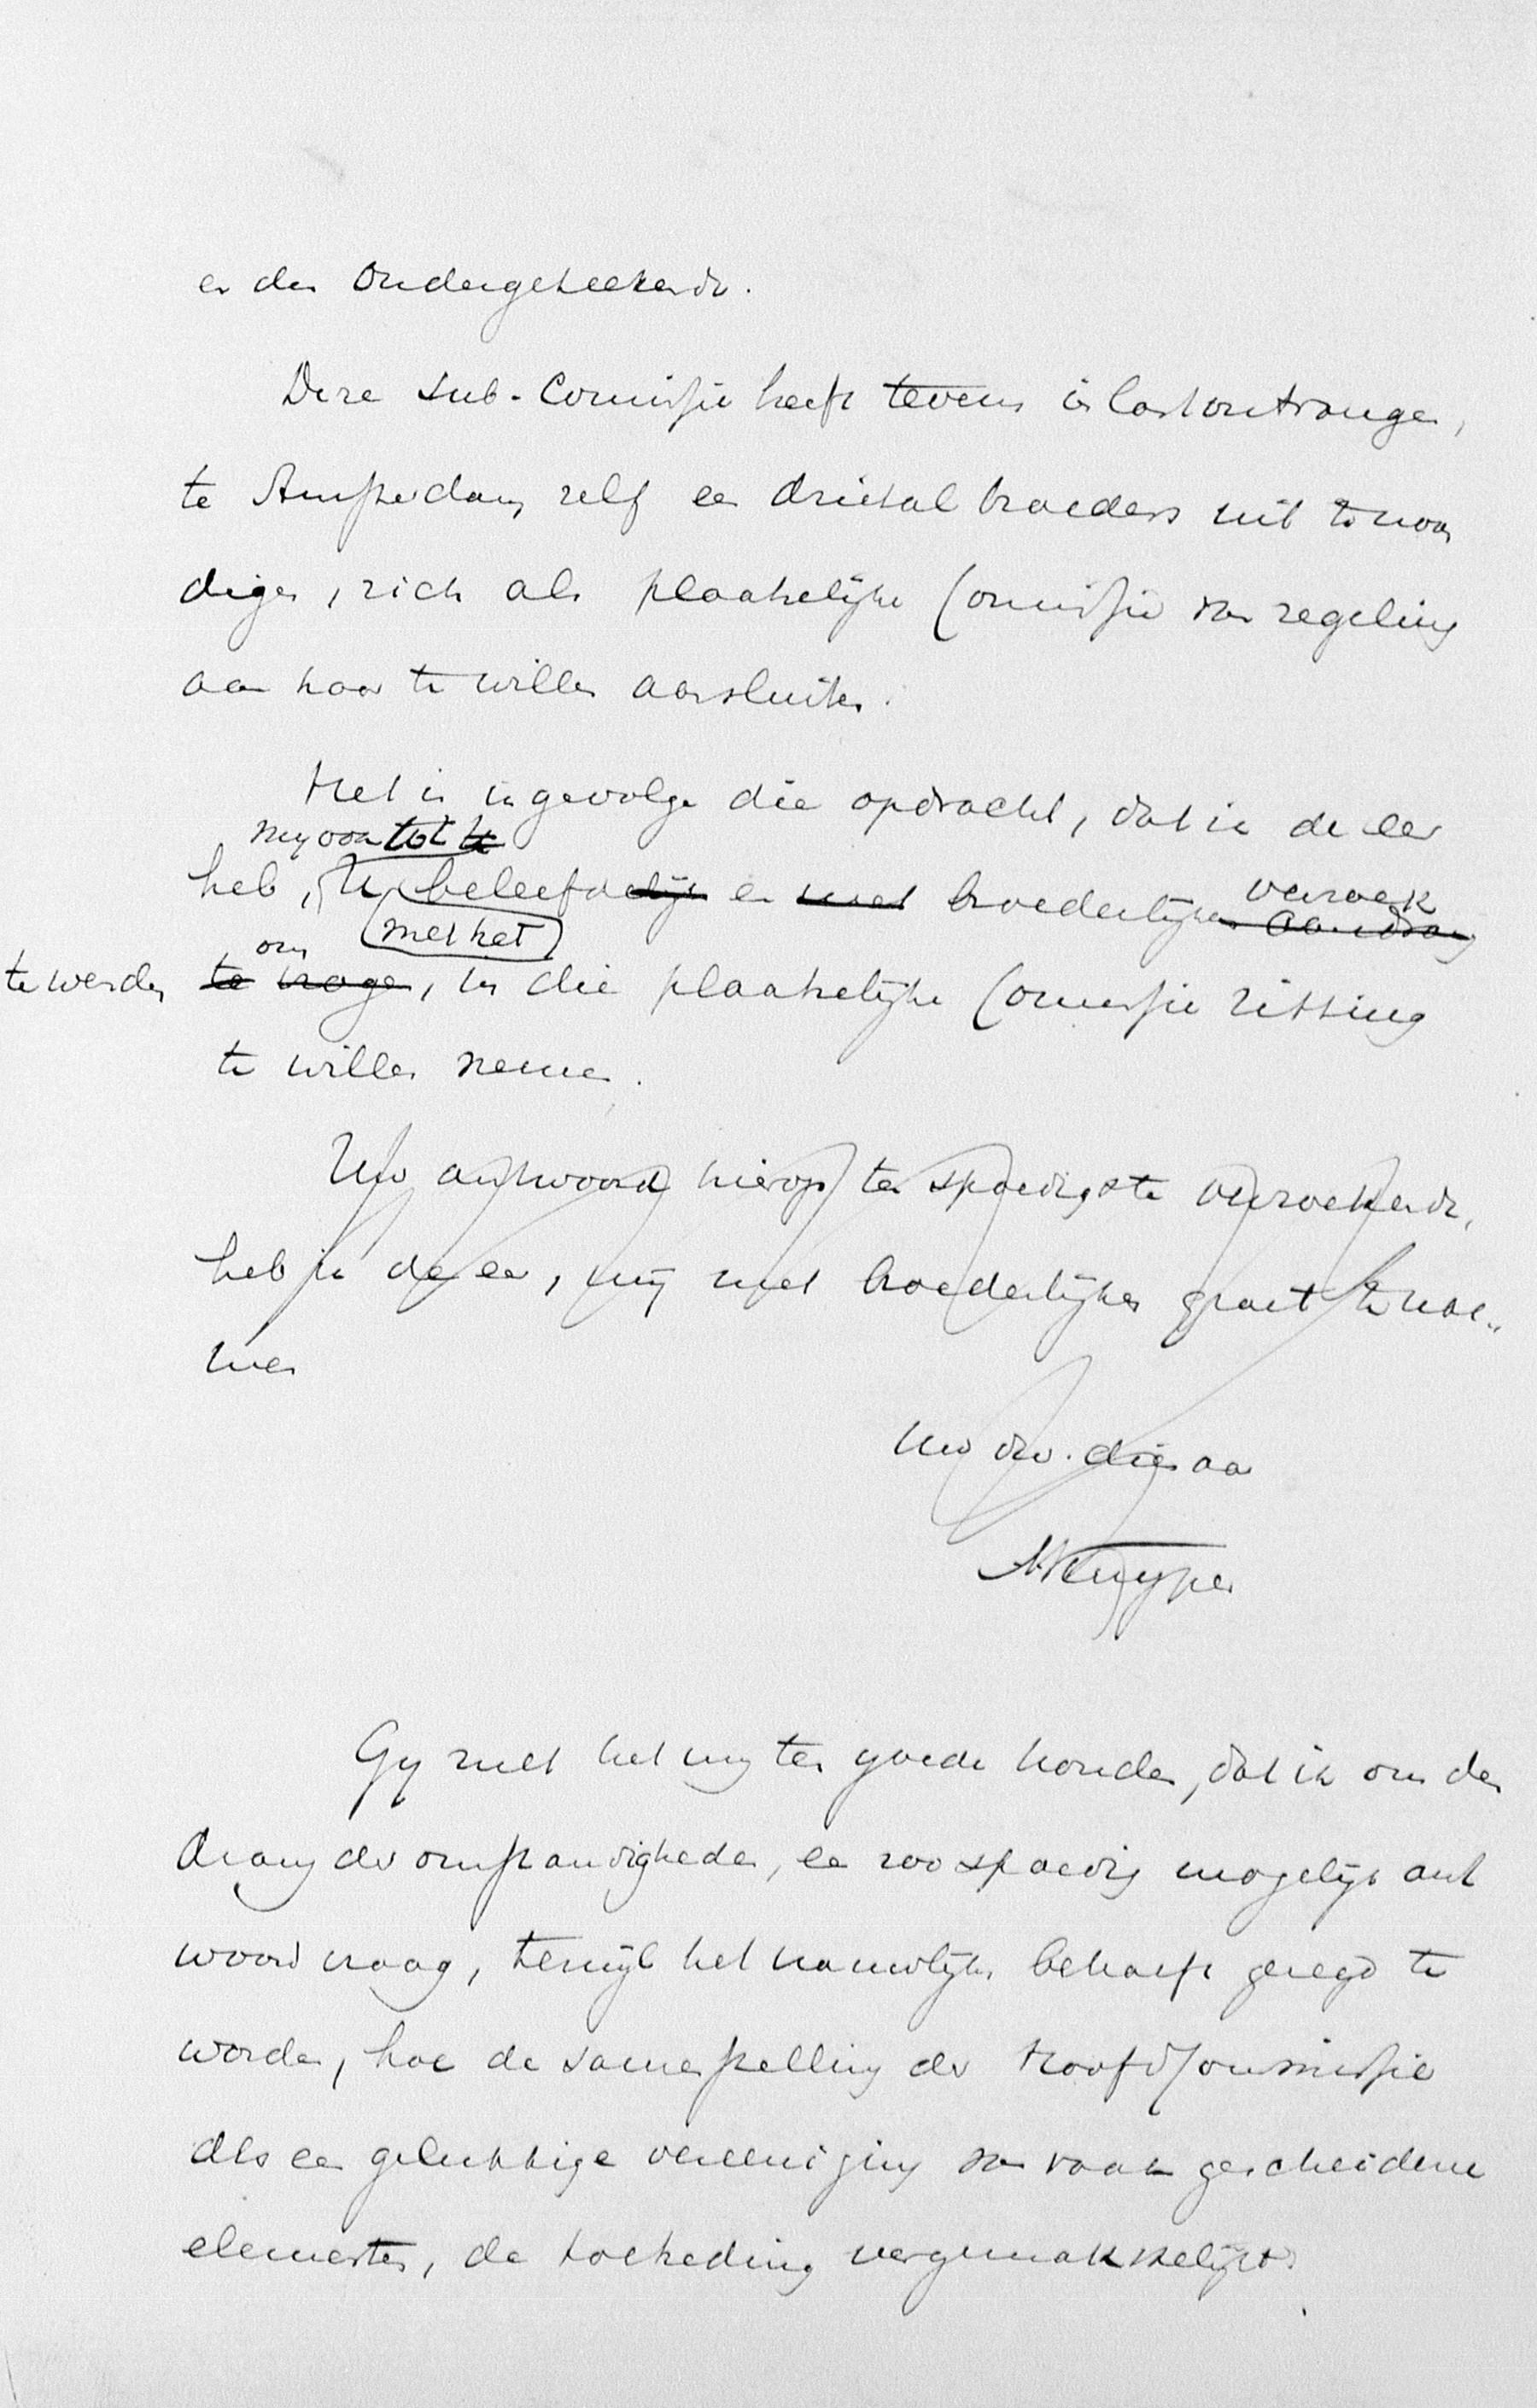 en den ondergeteekende.
Deze sub-Commissie heeft tevens in last ontvangen,
te Amsterdam, zelf een drietal broeders uit te noo
digen, zich als plaatselijke Commissie van regeling
aan haar te willen aansluiten.
Het is ingevolge die opdracht, dat ik de eer
mij voor tot te
heb, U beleefdelijk en met broederlijken aandrang
verzoek
om met het
te wenden te vragen, in die plaatselijke Commissie zitting
te willen nemen.
Uw antwoord hierop ten spoedigste verzoekende,
heb ik de eer, mij met broederlijken groet te noe-
men
Uw dw. dienaar
AKuyper
Gij zult het mij ten goede houden, dat ik om den
drang der omstandigheden, een zoo spoedig mogelijk ant
woord vraag, terwijl het nauwelijks behoeft gezegd te
worden, hoe de samenstelling der Hoofdcommissie
als een gelukkige vereeniging van vaak gescheidene
elementen, de toetreding vergemakkelijkt.